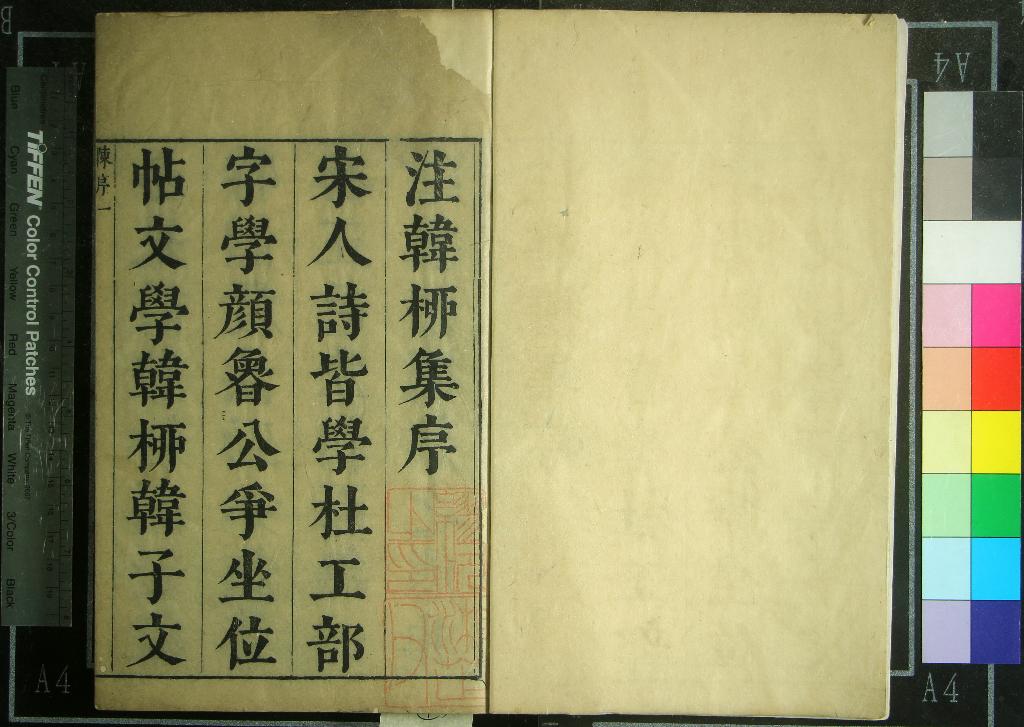 注韓柳集序
宋人詩皆學杜工部
字學顏魯公爭坐位
帖文學韓柳韓子文
陳序一
TIFFEN Color Control Patches
Blue Cyan Green Yellow Red Magenta White 3/Color Black
A4
A4
A4
A4
B